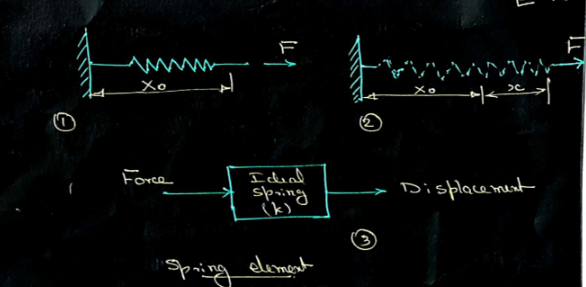 F
x0
①
F
x0
x
②
Force
Ideal
spring
(k)
Displacement
③
Spring element